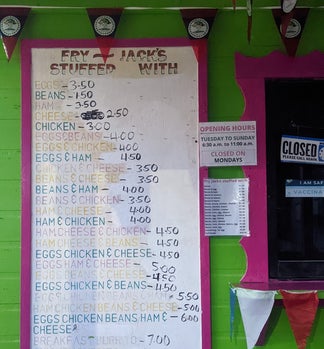 FRY - JACK'S
STUFFED WITH
EGGS - 3.50
BEANS - 1.50
HAM - 3.50
CHEESE - 2.50
CHICKEN - 3.00
EGGS & BEANS - 4.00
EGGS & CHICKEN - 4.00
EGGS & HAM - 4.50
CHICKEN & CHEESE - 3.50
BEANS & CHEESE - 3.50
BEANS & HAM - 4.00
BEANS & CHICKEN - 3.50
HAM & CHEESE - 4.00
HAM & CHICKEN - 4.00
HAM CHEESE & CHICKEN - 4.50
HAM CHEESE & BEANS - 4.50
EGGS CHICKEN & CHEESE - 4.50
EGGS HAM & CHEESE - 5.00
EGGS BEANS & CHEESE - 4.50
EGGS CHICKEN & BEANS - 4.50
5.50
HAM CHICKEN BEANS & CHEESE - 5.00
EGGS CHICKEN BEANS HAM & - 6.00
CHEESE
BREAKFAST BURRITO - 7.00
OPENING HOURS
TUESDAY TO SUNDAY
6:30 a.m. to 11:00 a.m.
CLOSED ON
MONDAYS
CLOSED
PLEASE CALL AGAIN
I AM SAF
VACCINA